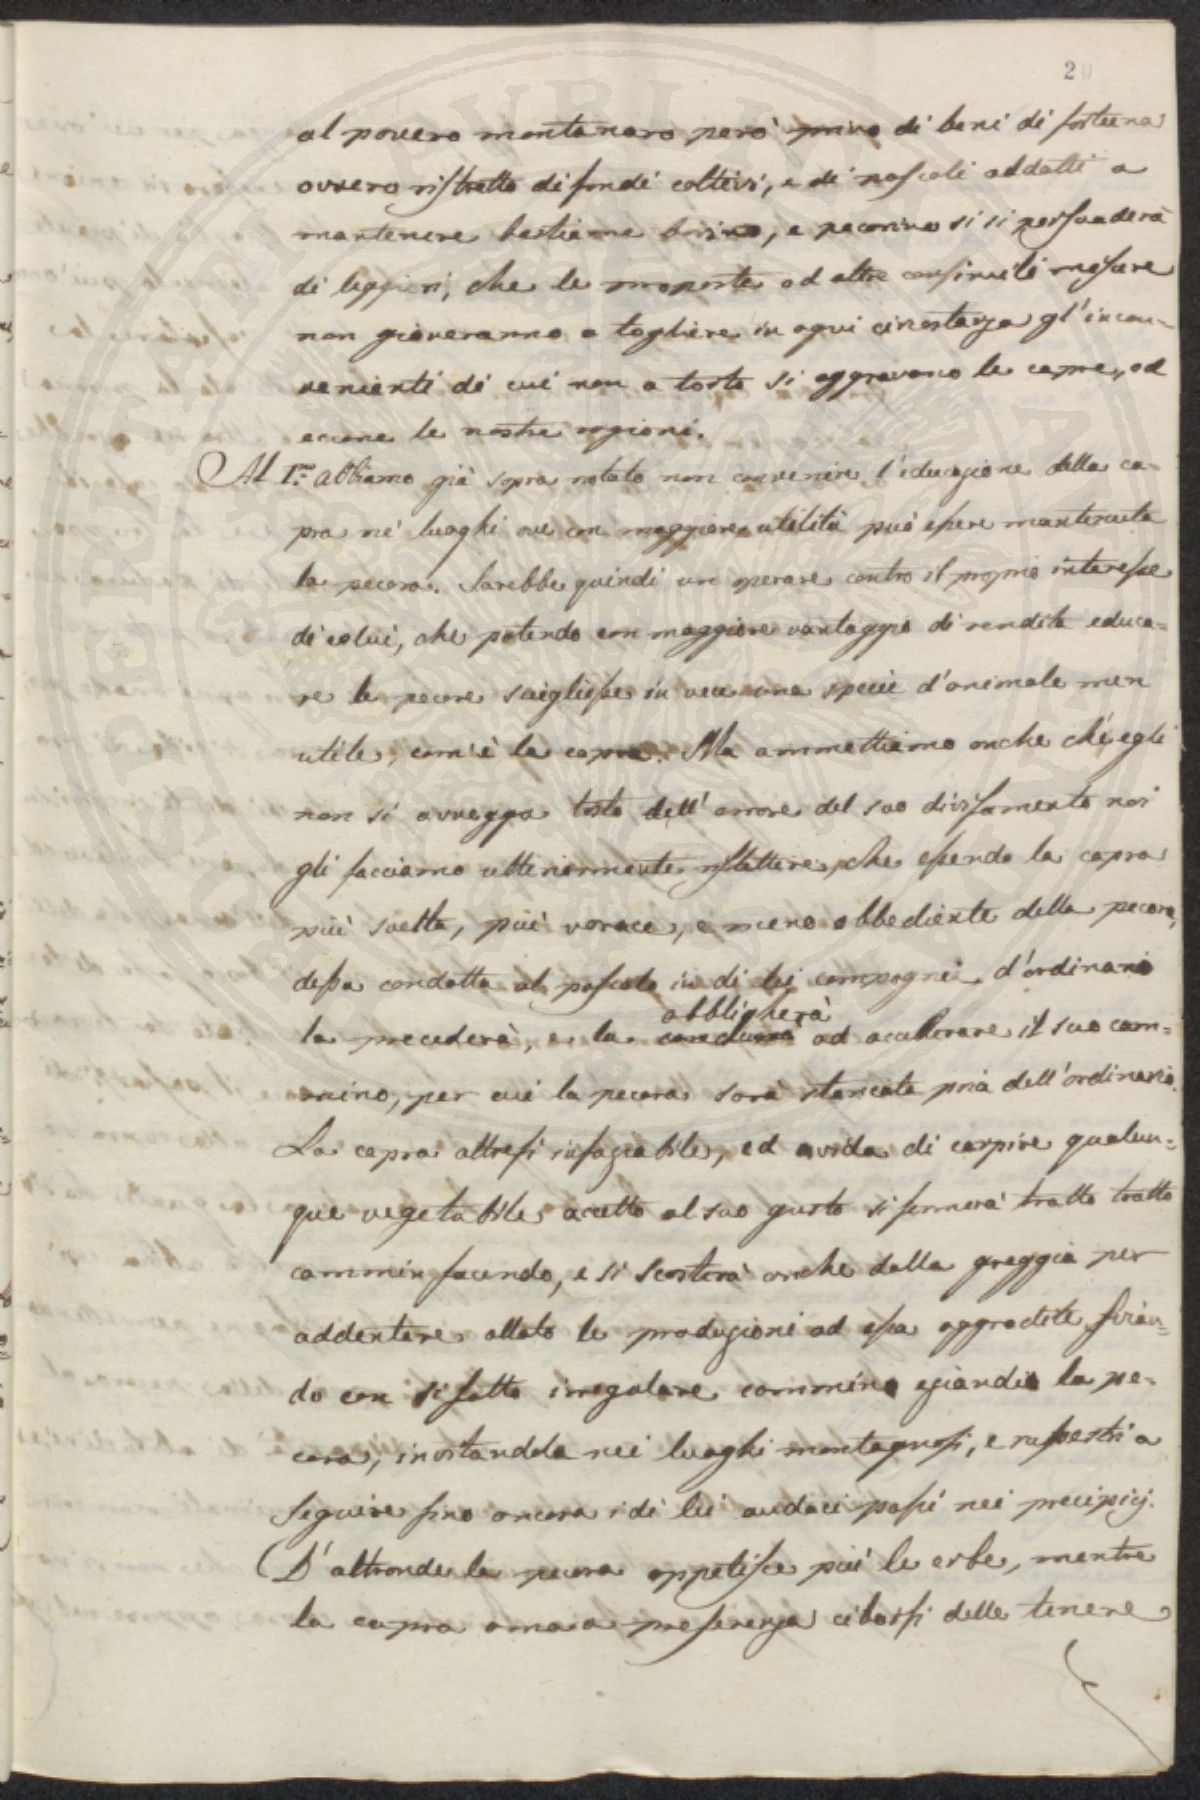 20
al povero montanaro però privo di beni di fortuna
ovvero ristretto di fondi coltivi, e di pascoli addatti a
mantenere bestiame bovino, e pecorino si si persuaderà
di leggieri, che le proposte ed altre consimili misure
non gioveranno a togliere in ogni circostanza gl'incon-
venienti di cui non a torto si aggravano le capre, ed
eccone le nostre ragioni.
Al 1.mo abbiamo già sopra notato non convenire l'educazione della ca-
pra ne' luoghi ove con maggiore utilità può essere mantenuta
la pecora. Sarebbe quindi un operare contro il proprio interesse
di colui, che potendo con maggiore vantaggio di rendita educa-
re le pecore scigliesse in vece una specie d'animale men
utile, com'è la capra. Ma ammettiamo anche ch'egli
non si avvegga tosto dell'errore del suo divisamento noi
gli facciamo ulteriormente riflettere, che essendo la capra
più svelta, più vorace, e meno obbediente della pecora,
dessa condotta al pascolo in di lei compagnia d'ordinario
obbligherà
la precederà, e la ad accellerare il suo cam-
mino, per cui la pecora sarà stancata pria dell'ordinario.
La capra altresi insaziabile, ed avida di carpire qualun-
que vegetabile accetto al suo gusto si fermerà tratto tratto
cammin facendo, e si scosterà anche dalla greggia per
addentare allato le produzioni ad essa aggradite,
do con si fatto irregolare cammino eziandio la pe-
cora, invitandola nei luoghi montagnosi, e rupestri a
seguire fino ancora i di lei audaci passi nei precipizj.
D'altronde la pecora appetisce più le erbe, mentre
la capra ama a preferenza cibarsi delle tenere